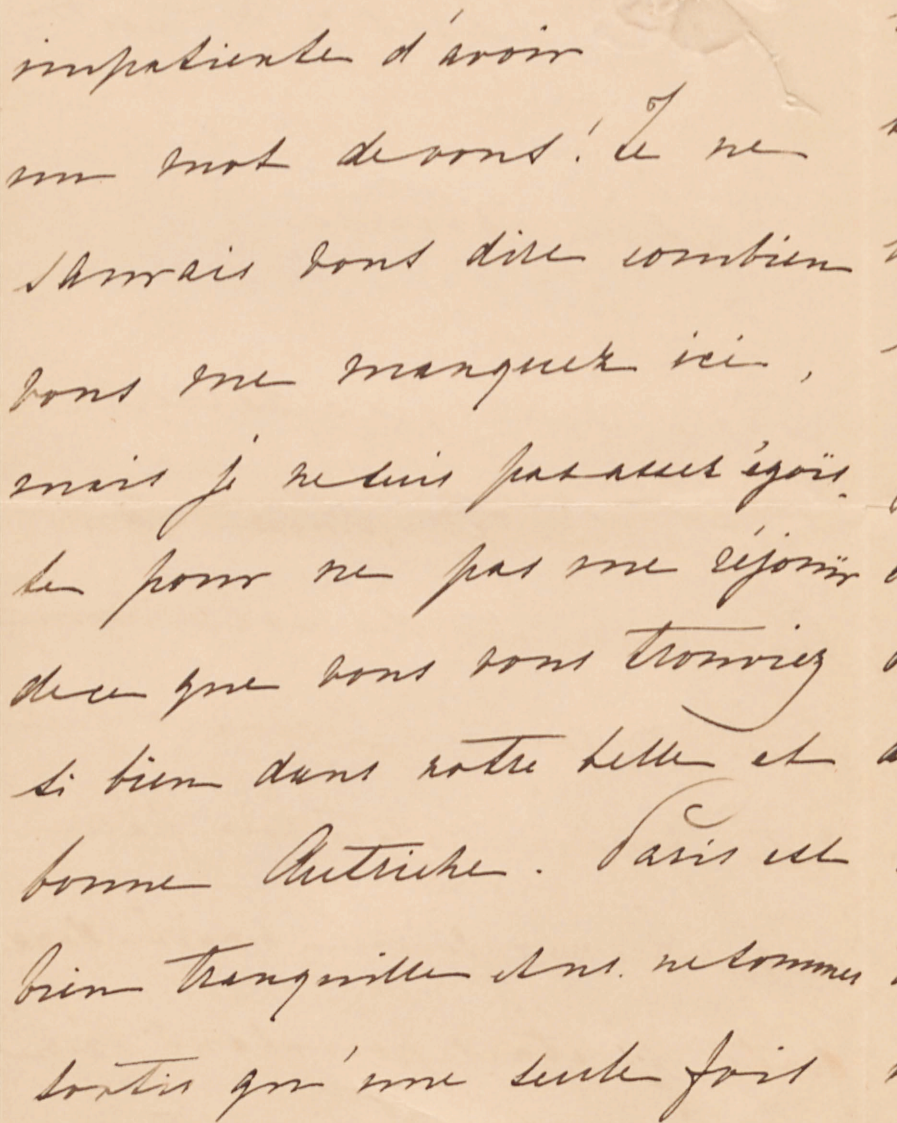 impatiente d'avoir
un mot de vous! Je ne
saurais vous dire combien
vous me manquez ici,
mais je ne suis pas assez égoïs-
te pour ne pas me réjouir
de ce que vous vous trouviez
si bien dans notre belle et
bonne Autriche. Paris est
bien tranquille et ns. ne sommes
sortis qu'une seule fois